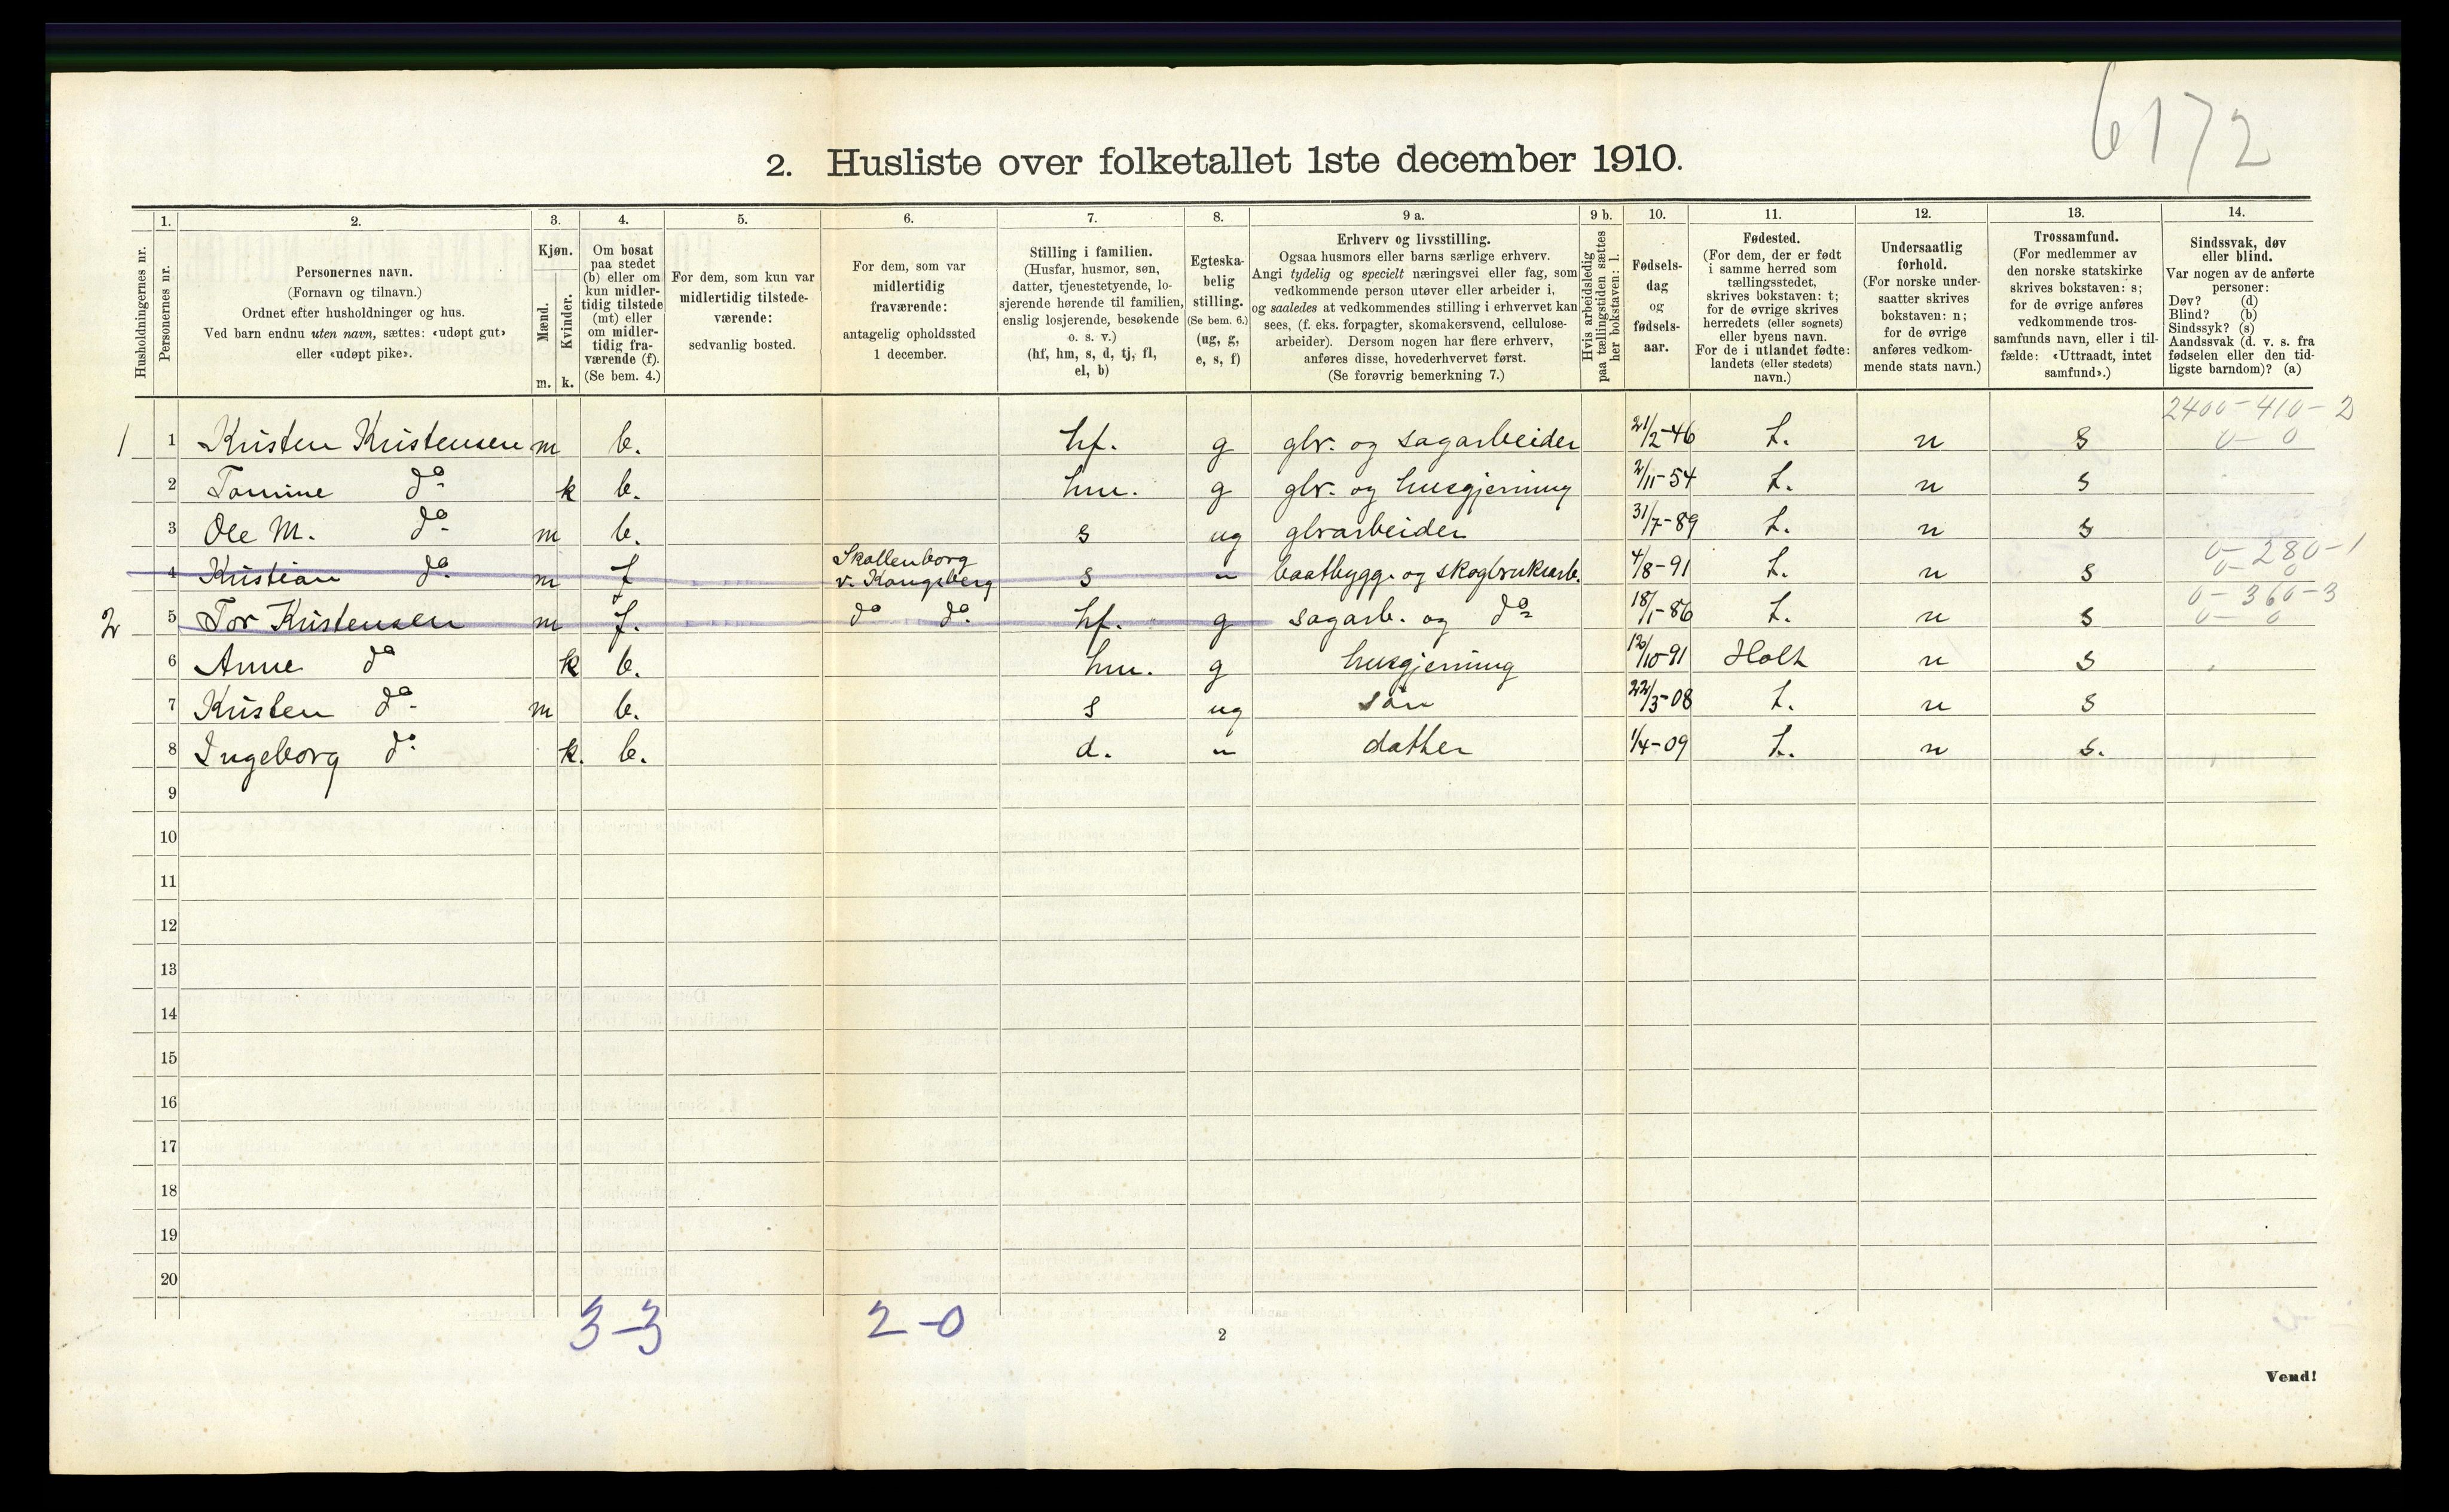 6172
2. Husliste over folketallet 1ste december 1910.
Husholdningernes nr.
1.
Personernes nr.
2.
Personernes navn.
(Fornavn og tilnavn.)
Ordnet efter husholdninger og hus.
Ved barn endnu uten navn, sættes: «udøpt gut»
eller «udøpt pike».
3.
Kjøn.
Mænd.
Kvinder.
m. k.
4.
Om bosat
paa stedet
(b) eller om
kun midler-
tidig tilstede
(mt) eller
om midler-
tidig fra-
værende (f).
(Se bem. 4.)
5.
For dem, som kun var
midlertidig tilstede-
værende:
sedvanlig bosted.
6.
For dem, som var
midlertidig
fraværende:
antagelig opholdssted
1 december.
7.
Stilling i familien.
(Husfar, husmor, søn,
datter, tjenestetyende, lo-
sjerende hørende til familien,
enslig losjerende, besøkende
o. s. v.)
(hf, hm, s, d, tj, fl,
el, b)
8.
Egteska-
belig
stilling.
(Se bem. 6.)
(ug, g,
e, s, f)
9 a.
Erhverv og livsstilling.
Ogsaa husmors eller barns særlige erhverv.
Angi tydelig og specielt næringsvei eller fag, som
vedkommende person utøver eller arbeider i,
og saaledes at vedkommendes stilling i erhvervet kan
sees, (f. eks. forpagter, skomakersvend, cellulose-
arbeider). Dersom nogen har flere erhverv,
anføres disse, hovederhvervet først.
(Se forøvrig bemerkning 7.)
9 b.
Hvis arbeidsledig
paa tællingstiden sættes
her bokstaven: l.
10.
Fødsels-
dag
og
fødsels-
aar.
11.
Fødested.
(For dem, der er født
i samme herred som
tællingsstedet,
skrives bokstaven: t;
for de øvrige skrives
herredets (eller sognets)
eller byens navn.
For de i utlandet fødte:
landets (eller stedets)
navn.)
12.
Undersaatlig
forhold.
(For norske under-
saatter skrives
bokstaven: n;
for de øvrige
anføres vedkom-
mende stats navn.)
13.
Trossamfund.
(For medlemmer av
den norske statskirke
skrives bokstaven: s;
for de øvrige anføres
vedkommende tros-
samfunds navn, eller i til-
fælde: «Uttraadt, intet
samfund».)
14.
Sindssvak, døv
eller blind.
Var nogen av de anførte
personer:
Døv? (d)
Blind? (b)
Sindssyk? (s)
Aandssvak (d. v. s. fra
fødselen eller den tid-
ligste barndom)? (a)
2400-410-2
1 1 Kristen Kristensen m b. hf. g gbr. og sagarbeider 21/2-46 t. n s 0-0
2 Tomine do k b. hm. g gbr. og husgjerning 2/11-54 t. n s
3 Ole M. do m b. s ug gbrarbeider 31/7-89 t. n s
0-280-1
4 Kristian do m f Skollenborg v. Kongsberg s " baatbygg. og skogbruksarb. 4/8-91 t. n s 0-0
0-360-3
2 5 Tor Kristensen m f. do do hf. g sagarb. og do 18/1-86 t. n s 0-0
6 Anne do k b. hm. g husgjerning 12/10-91 Holt n s
7 Kristen do m b. s ug søn 22/3-08 t. n s
8 Ingeborg do k. b. d. " datter 1/4-09 t. n s.
9
10
11
12
13
14
15
16
17
18
19
20
3-3 2-0
2
Vend!